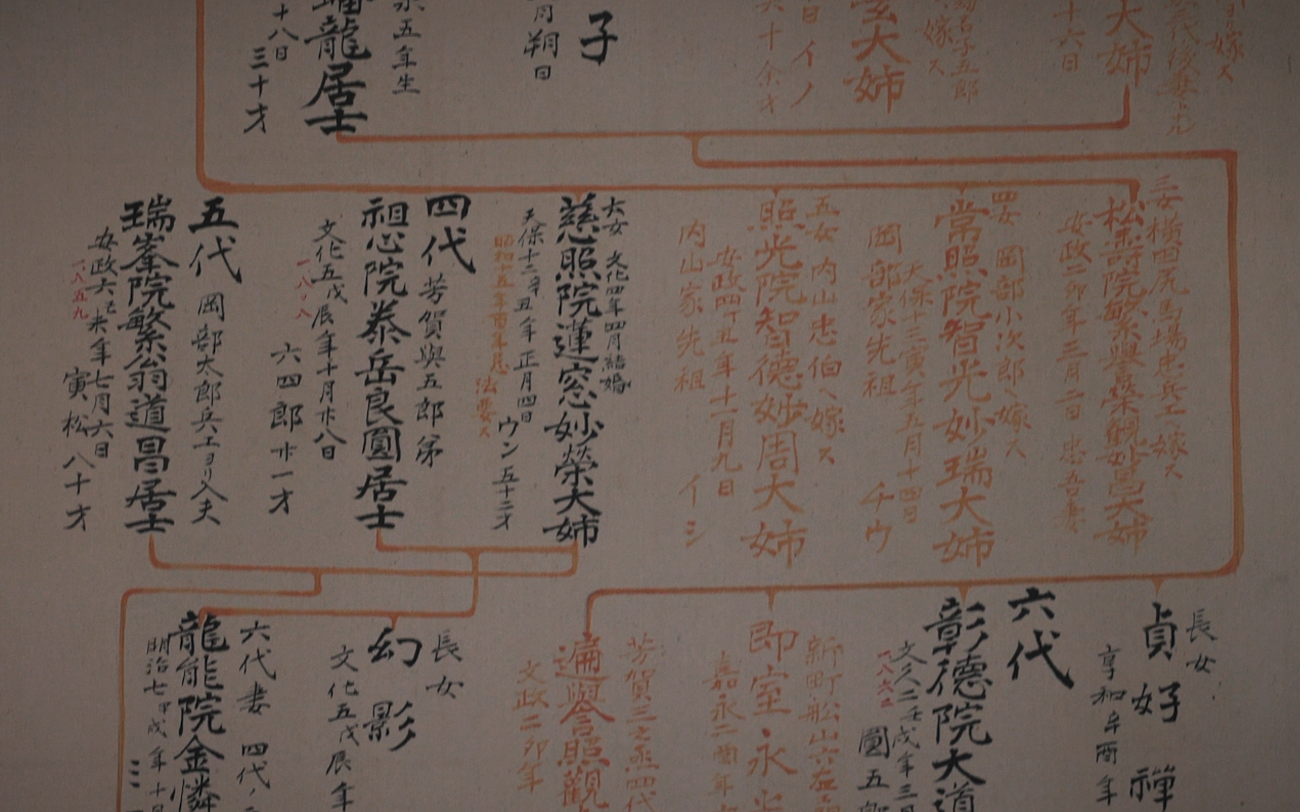 嫁ス
大姉
十六日
嫁ス
大姉
六十余才
日 イノ
子
月朔日
五年生
龍居士
十八日
三十才
三女 横田尻馬場忠兵エヘ嫁ス
松壽院繁譽榮観妙昌大姉
安政二卯年三月二日 忠吾妻
四女 岡部小次郎ヘ嫁ス
常照院智光妙瑞大姉
天保十三寅年五月十四日 チウ
岡部家先祖
五女 内山忠伯ヘ嫁ス
照光院智徳妙周大姉
安政四丁丑年十一月九日 イシ
内山家先祖
大女 文化四年四月結婚
慈照院蓮窓妙榮大姉
天保十二辛丑年正月四日 ウン 五十二才
法要ス
四代 芳賀與五郎弟
祖心院泰岳良圓居士
文化五戊辰年十月廿八日
一八〇八
六四郎 廿一才
五代 岡部太郎兵エヨリ入夫
瑞峯院繁翁道昌居士
安政六己未年七月六日
一八五九
寅松 八十才
長女
貞好禪
享和辛酉年
六代
彰德院大道
文久二壬戌年三月
一八六二
圓五郎
新町舩山六左
即室永
嘉永二酉年
芳賀三之丞四代
遍譽照觀
文政二卯年
長女
幻影
文化五戊辰年
六代妻 四代ノ
龍能院金憐
明治七甲戌年十月